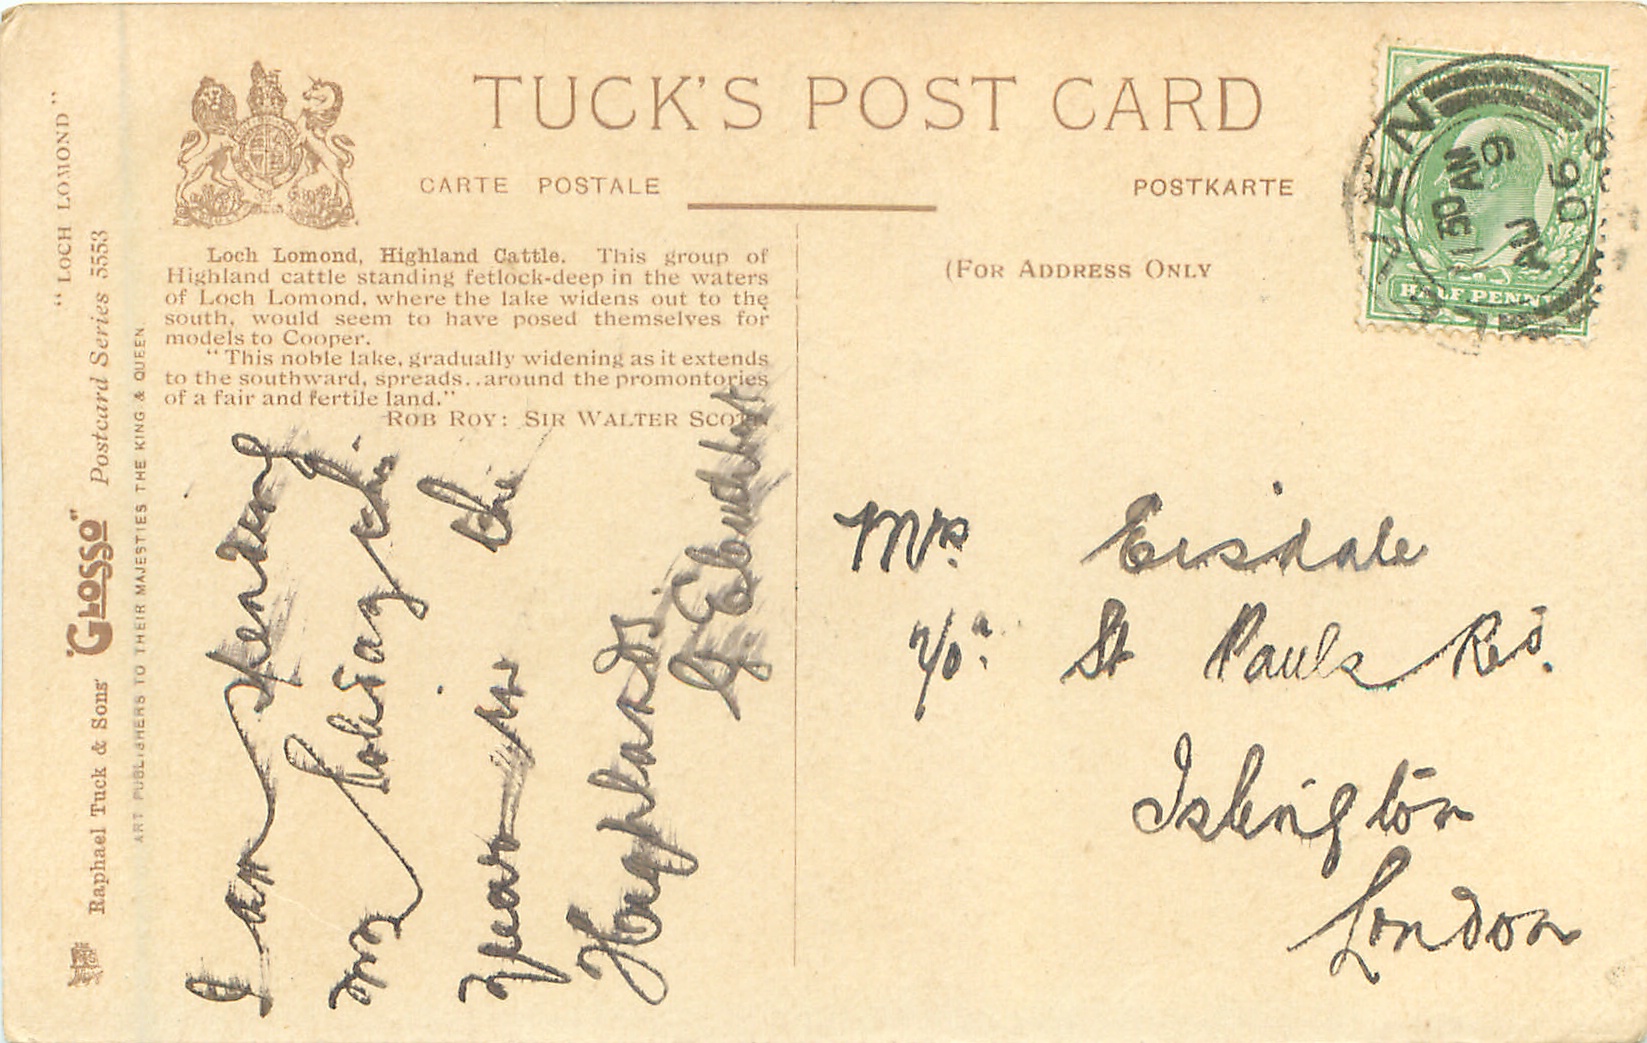 TUCK'S POST CARD
CARTE POSTALE
POSTKARTE
(FOR ADDRESS ONLY
"LOCH LOMOND"
Raphael Tuck & Sons' "GLOSSO" Postcard Series 5553
ART PUBLISHERS TO THEIR MAJESTIES THE KING & QUEEN.
Loch Lomond, Highland Cattle. This group of
Highland cattle standing fetlock-deep in the waters
of Loch Lomond, where the lake widens out to the
south, would seem to have posed themselves for
models to Cooper.
"This noble lake, gradually widening as it extends
to the southward, spreads..around the promontories
of a fair and fertile land."
ROB ROY: SIR WALTER SCOTT
I am spending
my holiday this
year in the
Highlands.
HALF PENNY
11 30 AM
AU 9
06
Mrs Eisdale
70a St Pauls Rd.
Islington
London